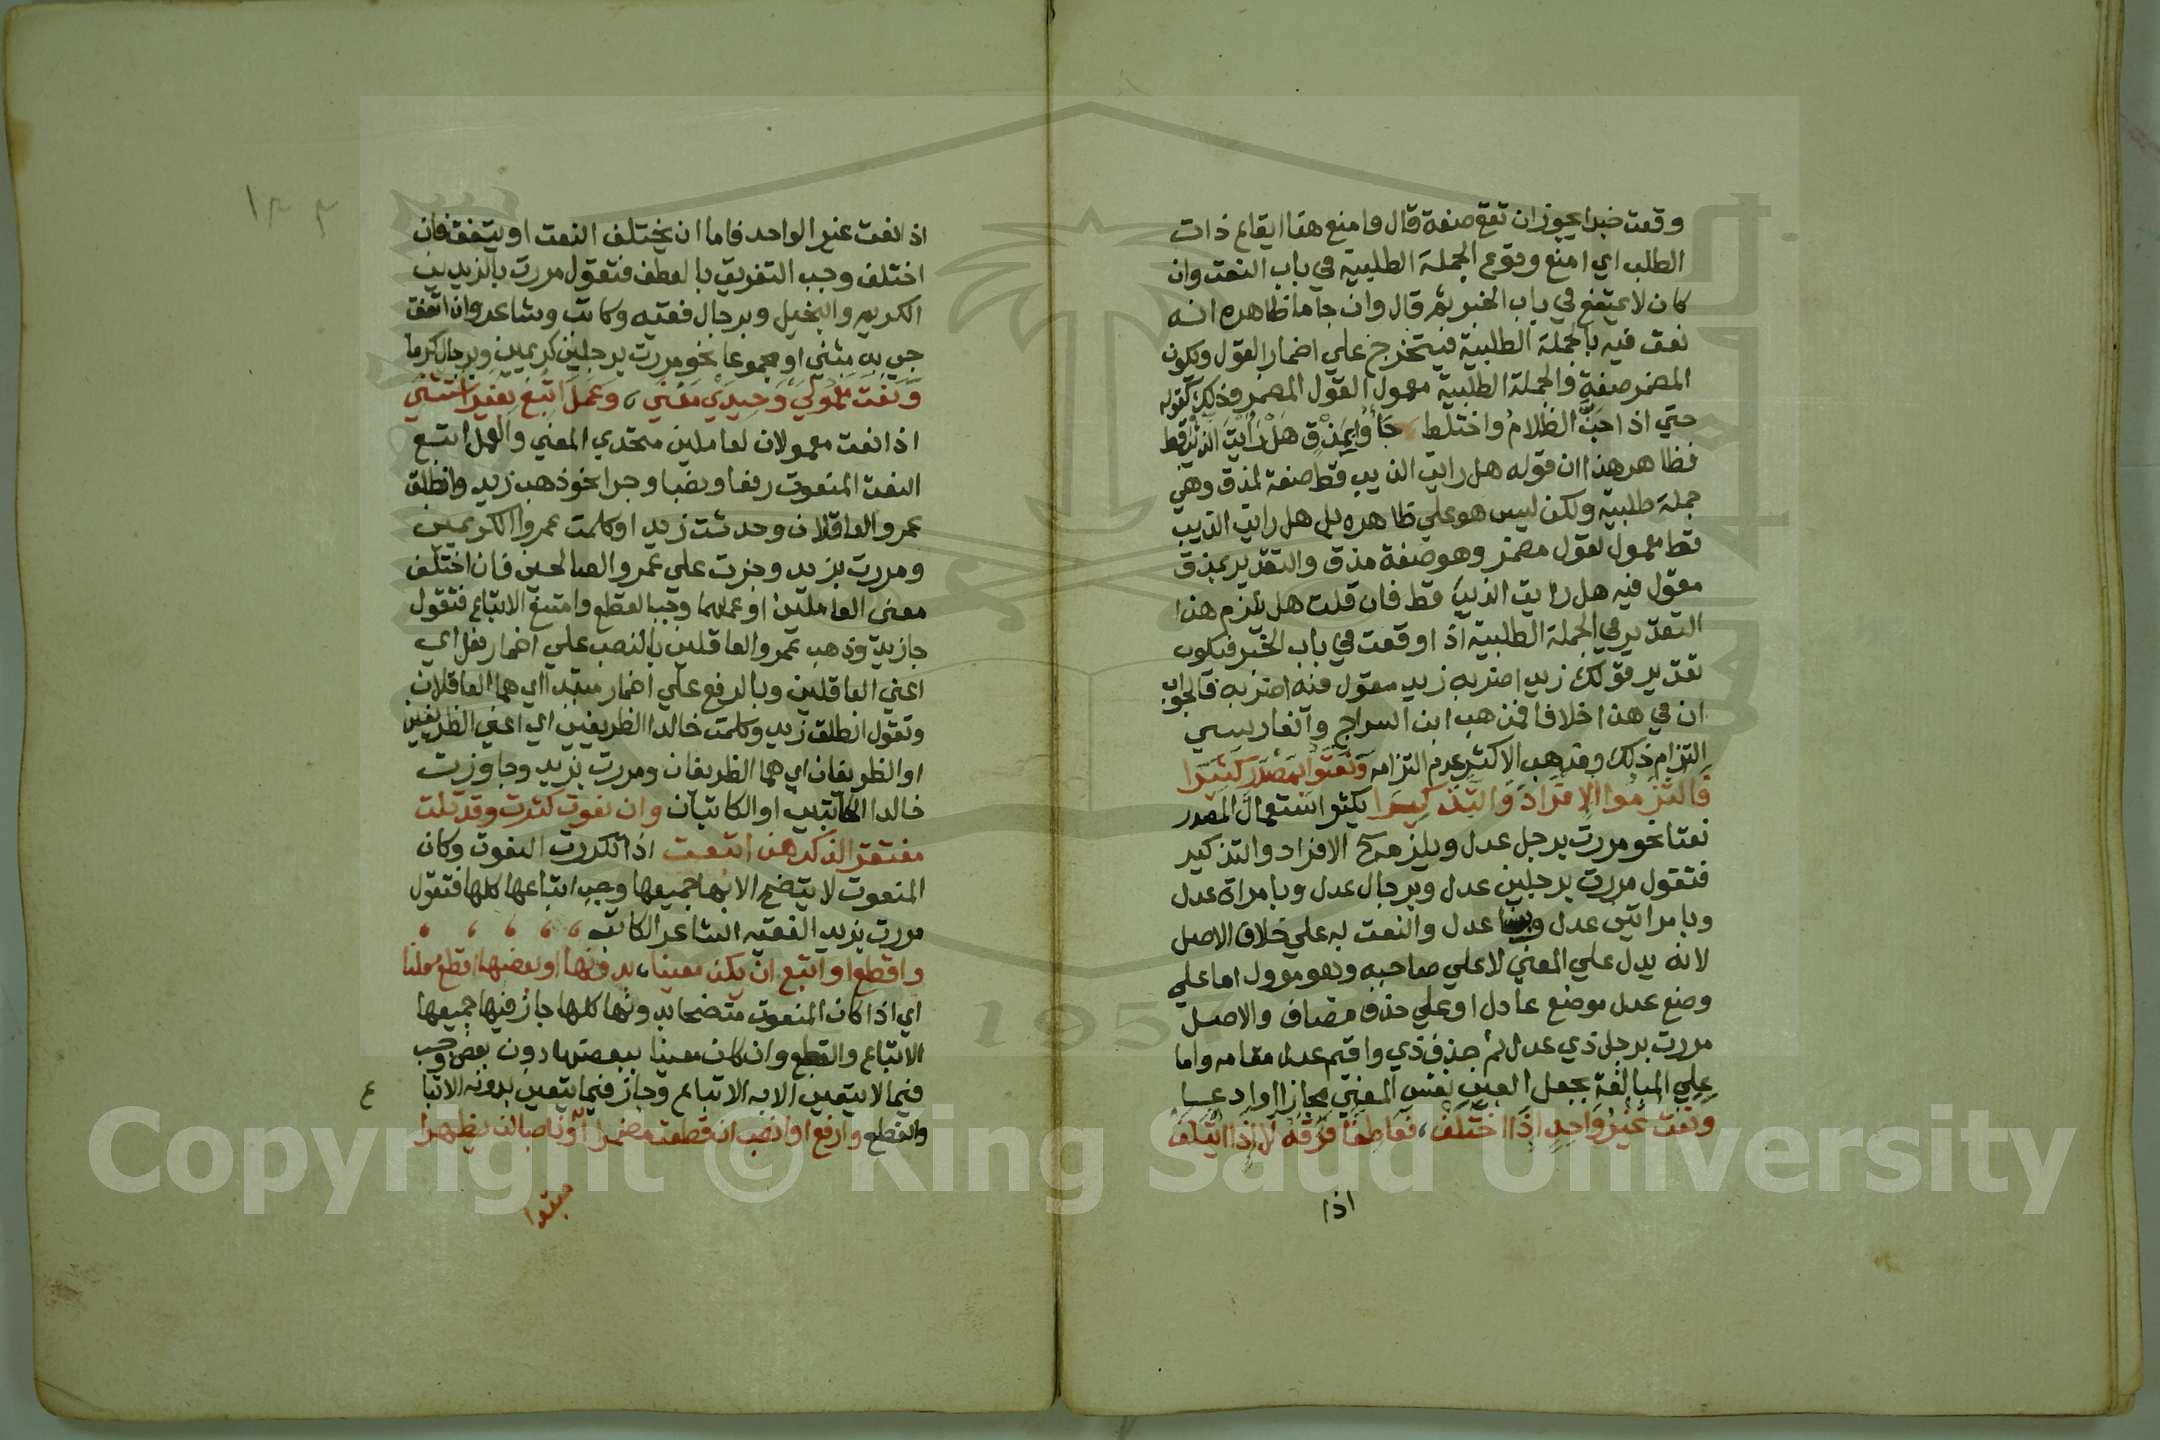 وقعت خبرا يجوز ان تقع صفة قال وامنع هنا ايقاع ذات
الطلب اي امنع وقوع الجملة الطلبية في باب النعت وان
كان لا يمتنع في باب الخبر ثم قال وان جا ما ظاهره انه
نعت فيه بالجملة الطلبية فيتخرج علي اضمار القول ويكون
المضمر صفة والجملة الطلبية معمول القول المضمر وذلك كقوله
حتي اذا جن الظلام واختلط جاؤا بمذق هل رايت الذيب قط
فظاهر هذا ان قوله هل رايت الذيب قط صفة لمذق وهي
جملة طلبية ولكن ليس هو علي ظاهره بل هل رايت الذيب
قط معمول لقول مضمر وهو صفة مذق والتقدير بمذق
مقول فيه هل رايت الذيب قط فان قلت هل يلزم هذا
التقدير في الجملة الطلبية اذا وقعت في باب الخبر فيكون
تقدير قولك زيد اضربه زيد مقول فيه اضربه فالجواب
ان في هذا خلافا فمذهب ابن السراج والفارسي
التزام ذلك ومذهب الاكثر عدم التزامه ونعتوا بمصدر كثيرا
فالتزموا الافراد والتذكيرا يكثر استعمال المصدر
نعتا نحو مررت برجل عدل ويلزم ح الافراد والتذكير
فتقول مررت برجلين عدل وبرجال عدل وبامراة عدل
وبامراتين عدل وبنسا عدل والنعت به علي خلاف الاصل
لانه يدل علي المعني لا علي صاحبه وهو مؤول اما علي
وضع عدل موضع عادل او علي حذف مضاف والاصل
مررت برجل ذي عدل ثم حذف ذي واقيم عدل مقامه واما
علي المبالغة بجعل العين نفس المعني مجازا او ادعا
ونعت غير واحد اذا اختلف، فعاطفا فرقه لا اذا ائتلف
اذا
١٣٣
اذا نعت غير الواحد فاما ان يختلف النعت او يتفق فان
اختلف وجب التفريق بالعطف فتقول مررت بالزيدين
الكريم والبخيل وبرجال فقيه وكاتب وشاعر وان اتفق
جي به مثني او مجموعا نحو مررت برجلين كريمين وبرجال كرما
ونعت معمولي وحيدي معني، وعمل اتبع بغير استثني
اذا نعت معمولان لعاملين متحدي المعني والعمل اتبع
النعت المنعوت رفعا ونصبا وجرا نحو ذهب زيد وانطلق
عمرو العاقلان وحدثت زيدا وكلمت عمروا الكريمين
ومررت بزيد وجزت علي عمرو الصالحين فان اختلف
معني العاملين او عملهما وجب القطع وامتنع الاتباع فتقول
جا زيد وذهب عمرو العاقلين بالنصب علي اضمار فعل اي
اعني العاقلين وبالرفع علي اضمار مبتدا اي هما العاقلان
وتقول انطلق زيد وكلمت خالدا الظريفين اي اعني الظريفين
او الظريفان اي هما الظريفان ومررت بزيد وجاوزت
خالدا الكاتبين او الكاتبان وان نعوت كثرت وقد تلت
مفتقرا لذكرهن اتبعت اذا تكررت النعوت وكان
المنعوت لا يتضح الا بها جميعها وجب اتباعها كلها فتقول
مررت بزيد الفقيه الشاعر الكاتب
واقطع او اتبع ان يكن معينا، بدونها او بعضها اقطع معلنا
اي اذا كان المنعوت متضحا بدونها كلها جاز فيها جميعها
الاتباع والقطع وان كان معينا ببعضها دون بعض وجب
فيما لا يتعين الا به الاتباع وجاز فيما يتعين بدونه الاتبا
ع
والقطع وارفع او انصب ان قطعت مضمرا او ناصبا لن يظهرا
مبتدا
Copyright © King Saud University
1957